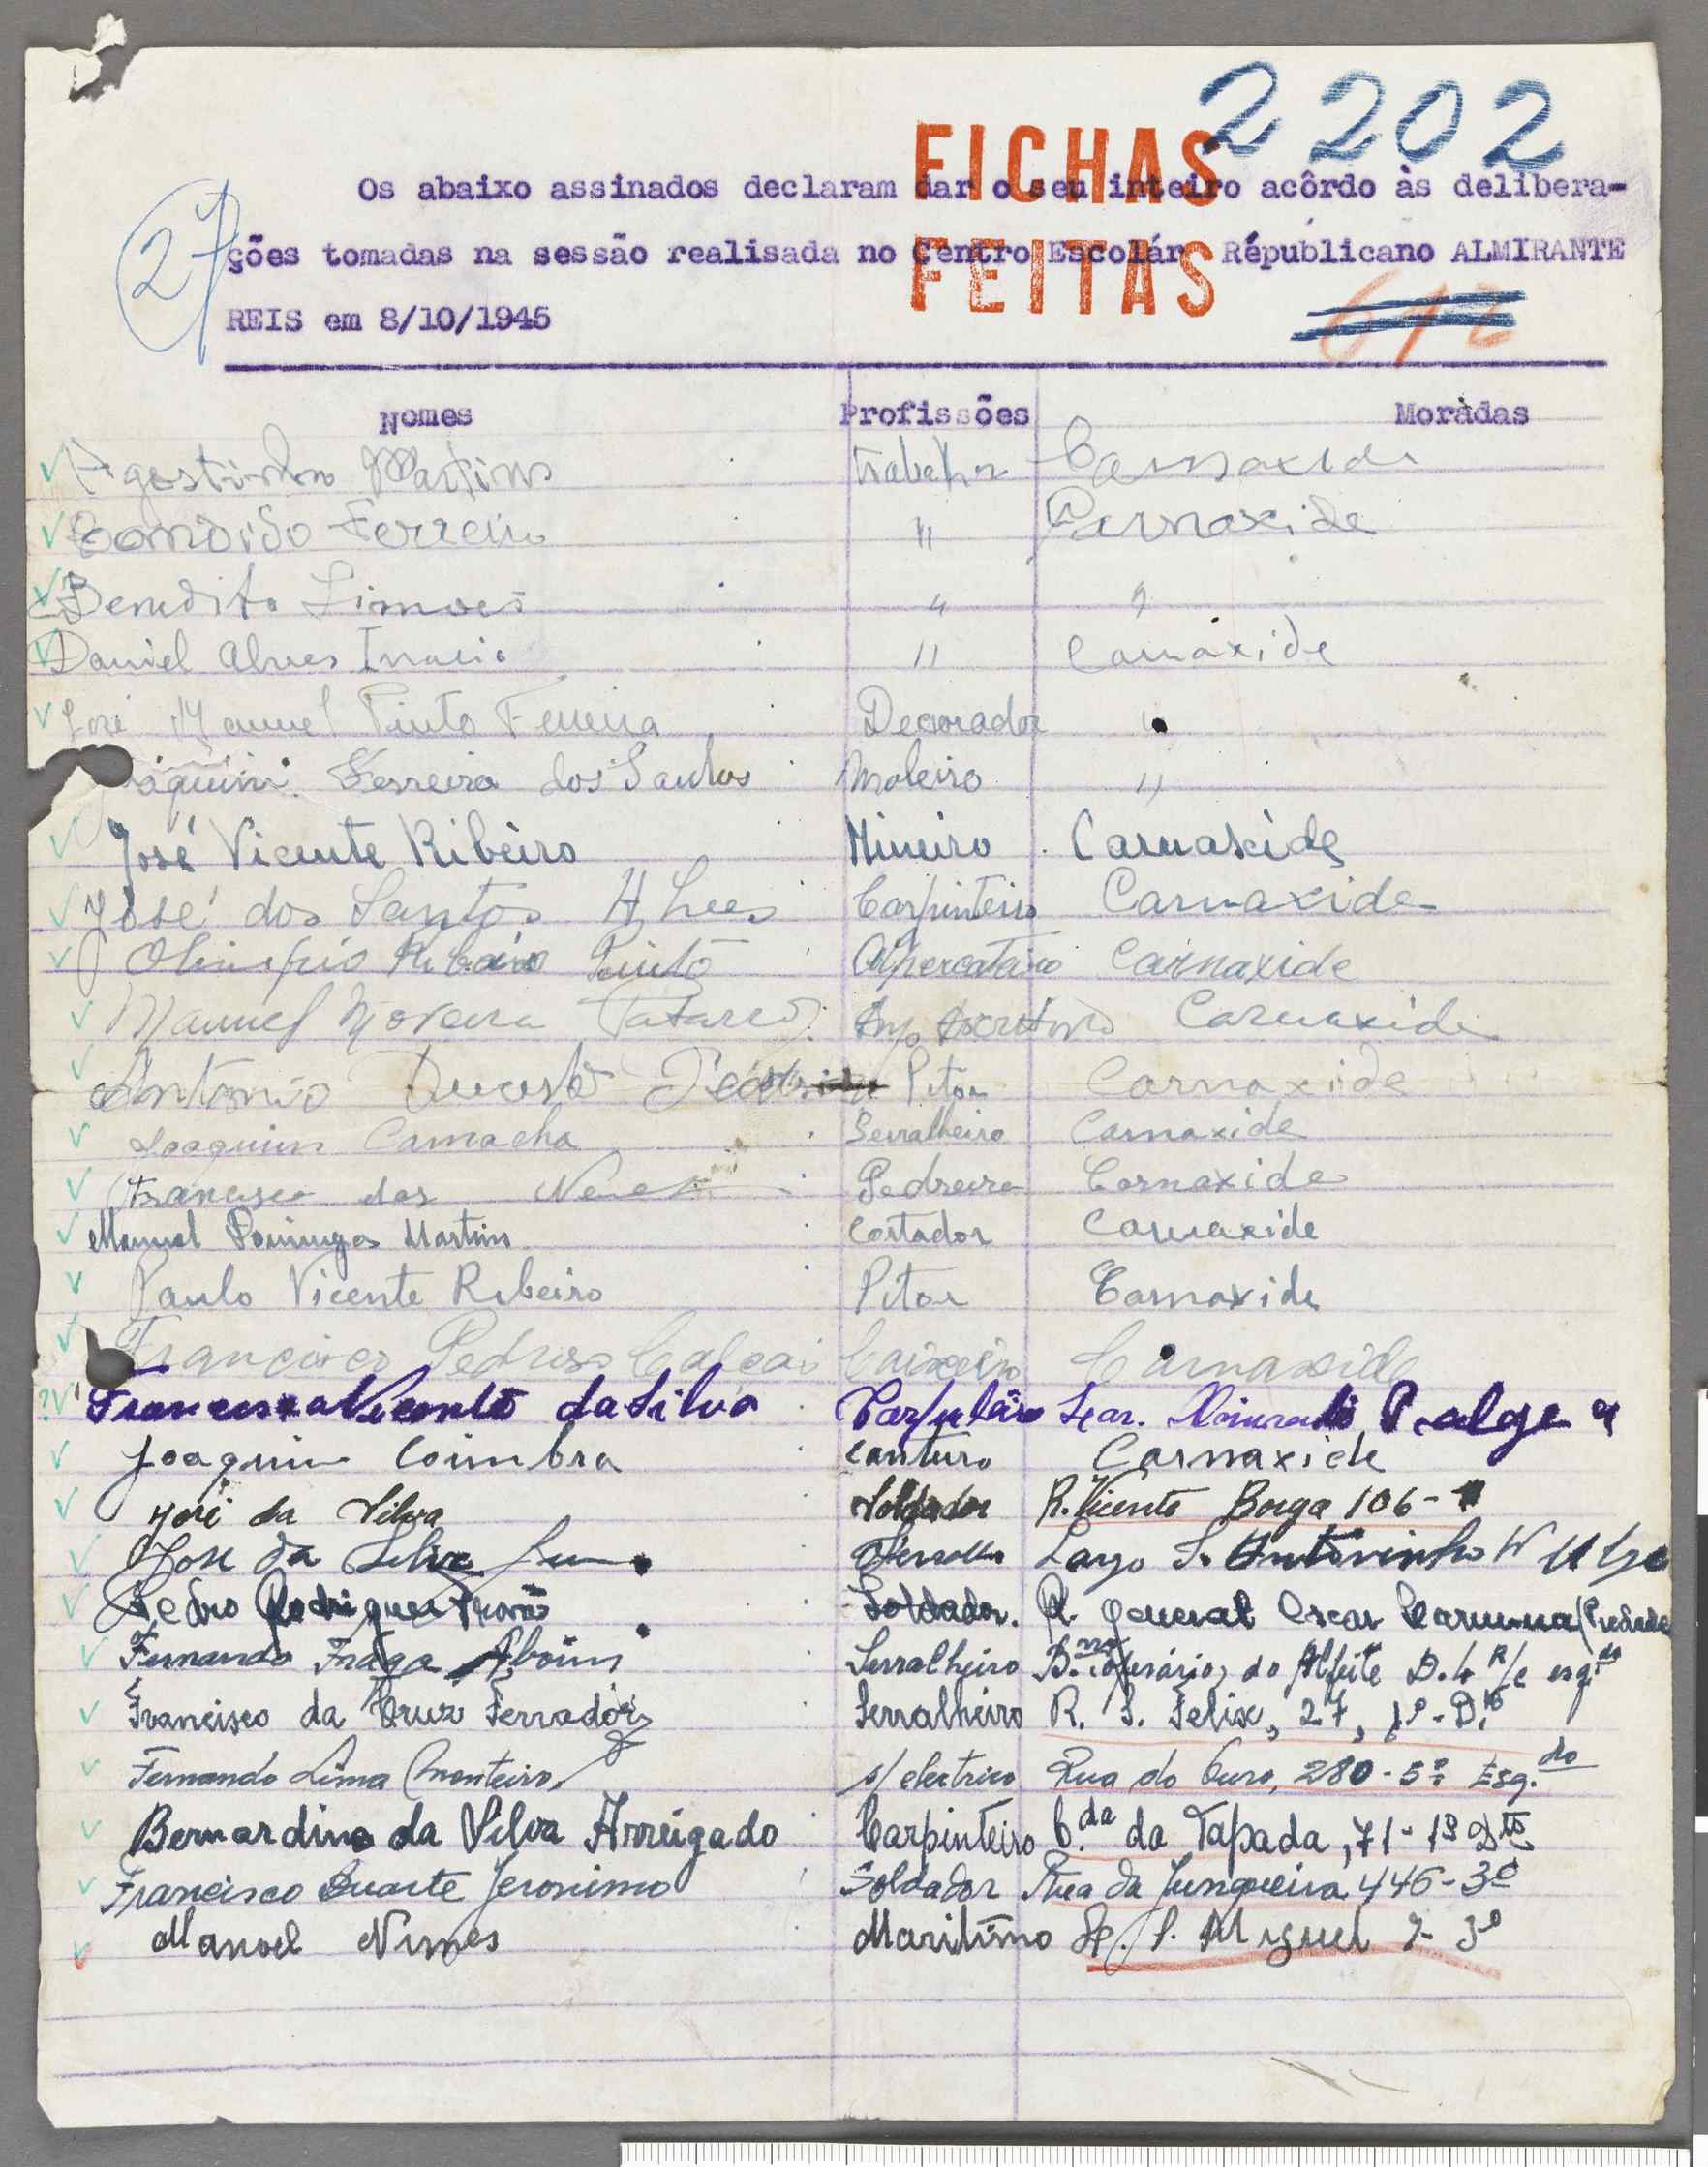 2202
FICHAS
FEITAS
27
Os abaixo assinados declaram dar o seu inteiro acôrdo às delibera-
ções tomadas na sessão realisada no Centro Escolár Républicano ALMIRANTE
REIS em 8/10/1945
612
Nomes Profissões Moradas
Agostinho Martins Carnaxide
Ferreira " Carnaxide
Benedito Simões " "
Daniel Alves Inacio " Carnaxide
José Manuel Pinto Ferreira Decorador "
aquim Ferreira dos Santos Moleiro "
José Vicente Ribeiro Mineiro Carnaxide
José dos Santos Alves Carpinteiro Carnaxide
Olimpio Ribeiro Pinto Alpercateiro Carnaxide
Manuel Moreira Carnaxide
António Pitor Carnaxide
Joaquim Camacha Serralheiro Carnaxide
Francisco das Neves Pedreiro Carnaxide
Manuel Domingos Martins Cortador Carnaxide
Paulo Vicente Ribeiro Pitor Carnaxide
Francisco Pedroso Caixeiro Carnaxide
Francisco Vicente da Silva
Joaquim Coimbra Canturo Carnaxide
José da Silva Soldador R. Vicente Borga 106-
José da Silva Largo S.
Pedro Rodrigues Soldador. R. General
Fernando Fraga Aboim Serralheiro do Alfeite
Francisco da Cruz Ferrador Serralheiro R. S. Felix, 27, 1º-D.to
Fernando Lima Monteiro s/ electrico Rua do Ouro, 280-5º Esq.do
Bernardino da Silva Arreigado Carpinteiro C.da da Tapada, 71-1º Dto
Francisco Duarte Jeronimo Soldador Rua da Junqueira 446-3º
Manoel Nunes Maritimo S. Miguel 3º